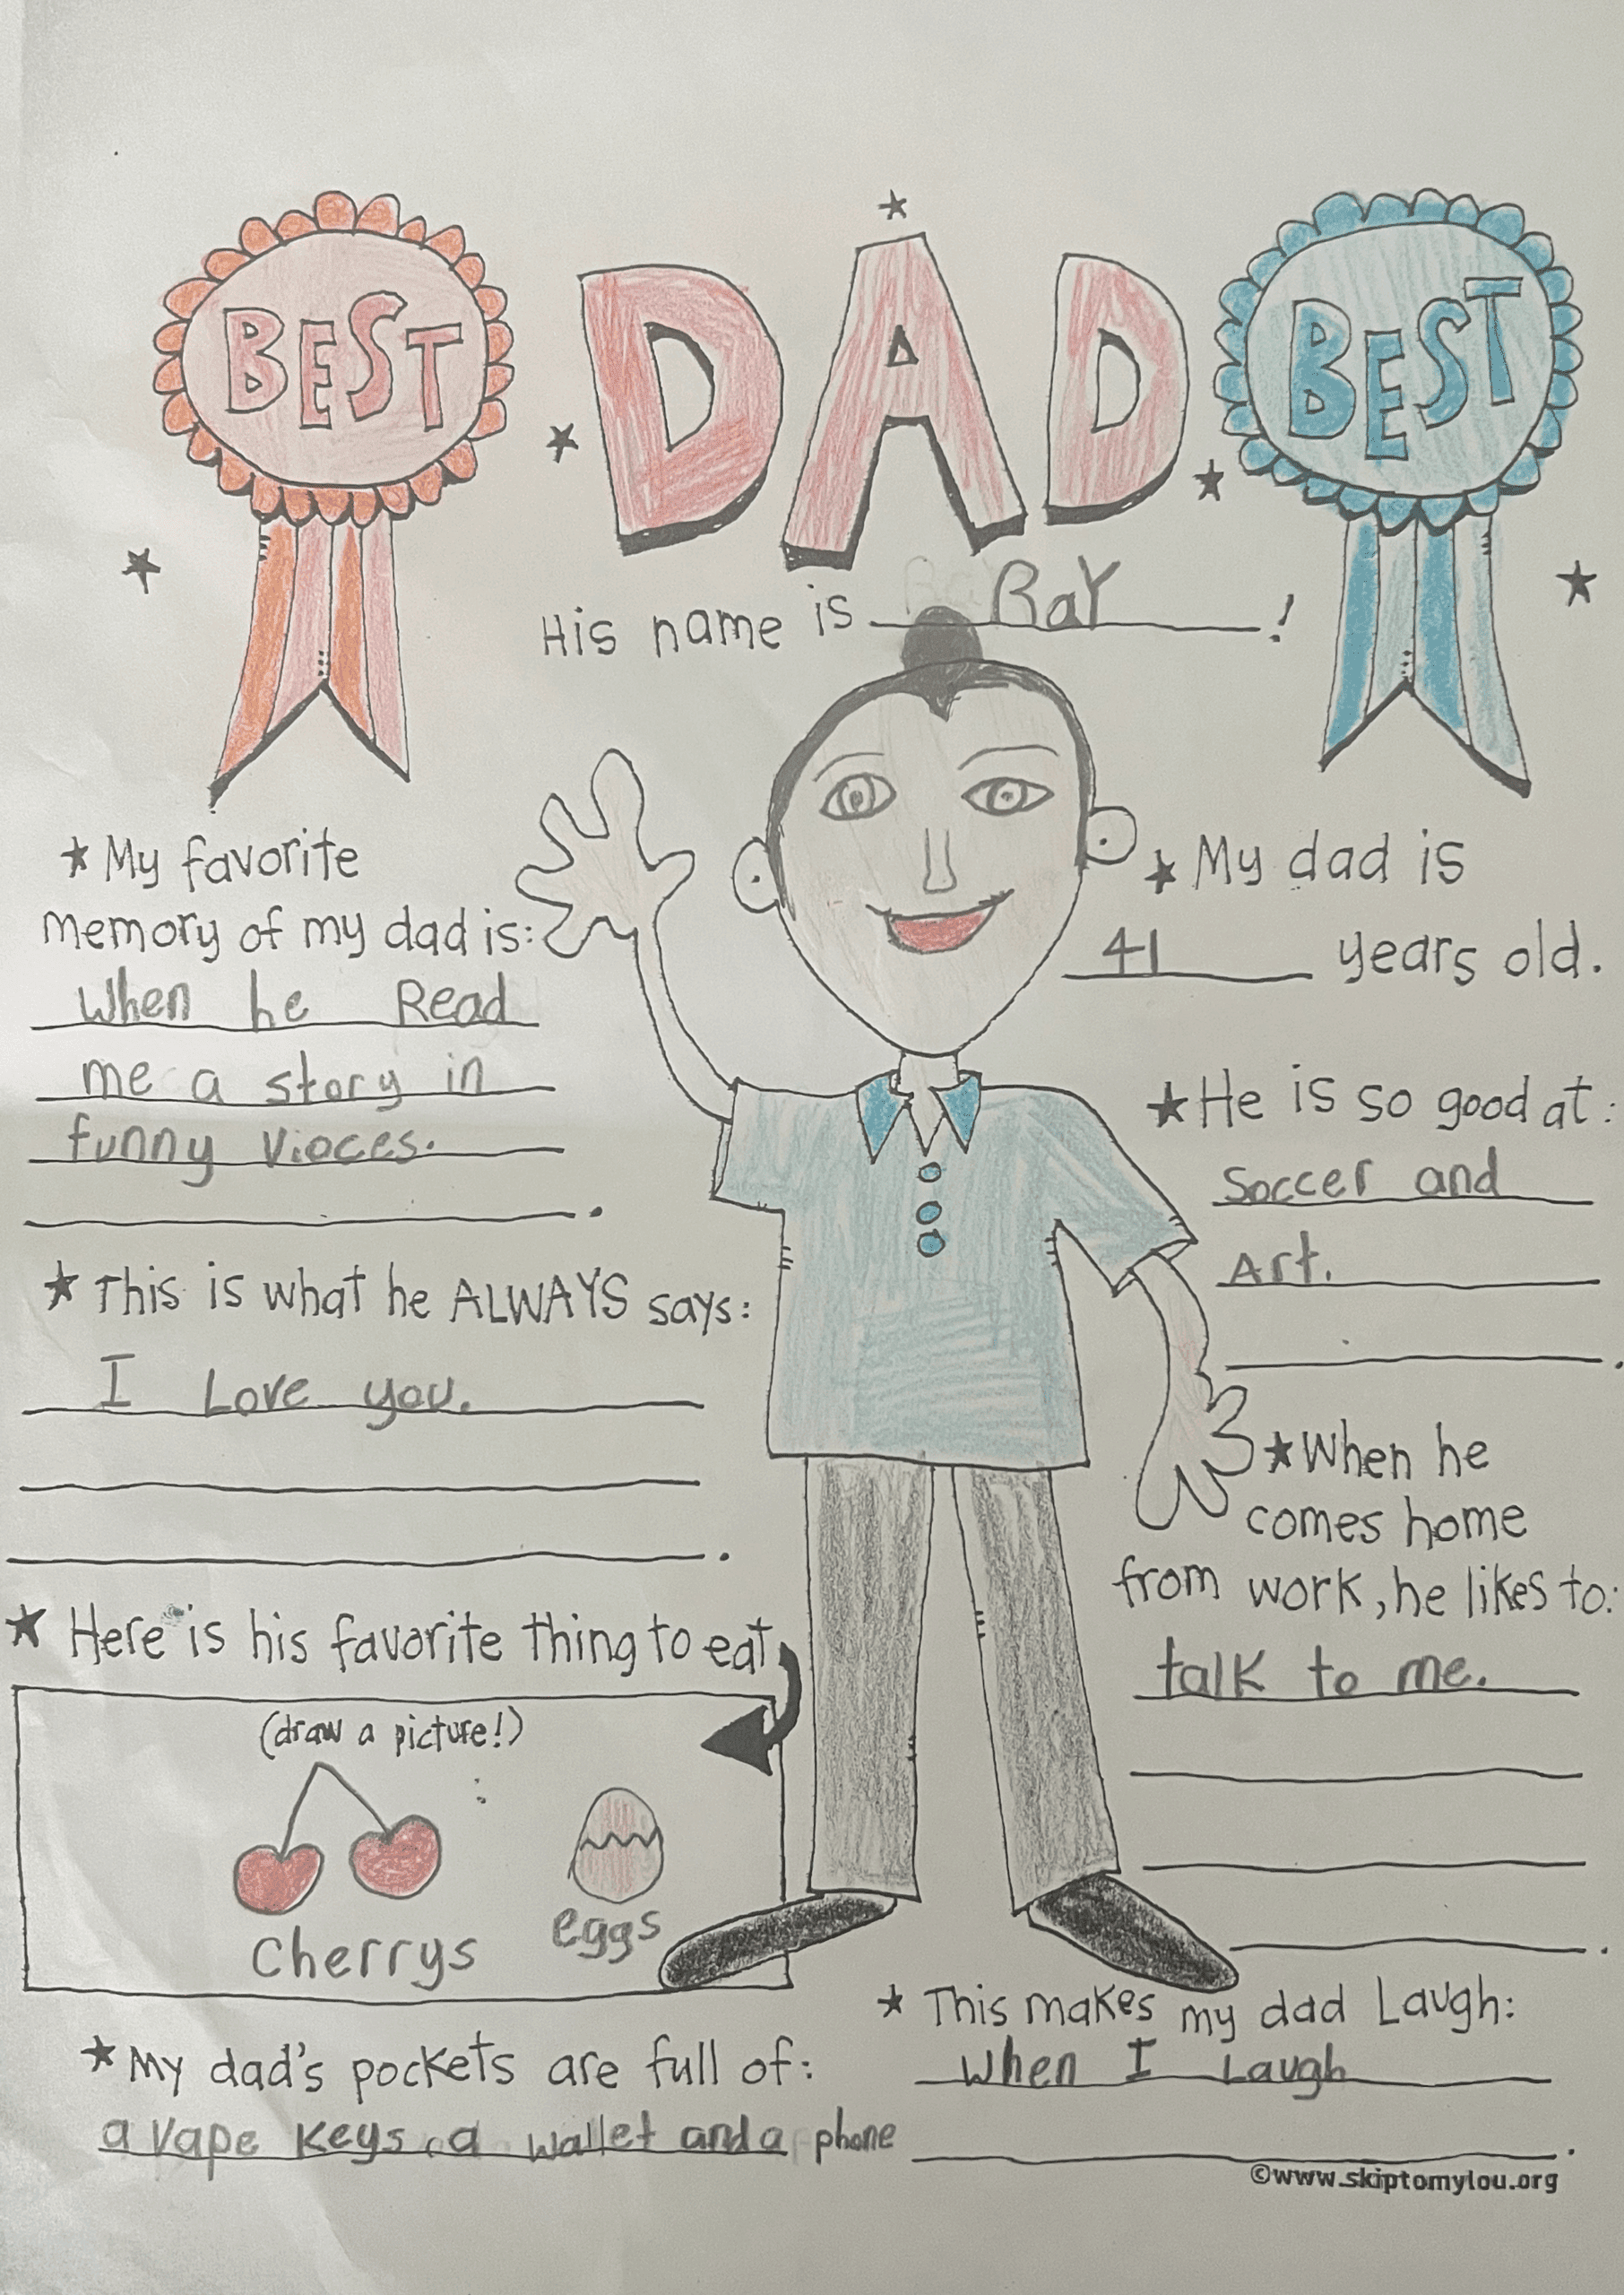 BEST
DAD
BEST
His name is RaY!
★ My favorite
memory of my dad is:
when he Read
me a story in
funny vioces.
.
★ This is what he ALWAYS says:
I Love you.
.
★ Here is his favorite thing to eat
(draw a picture!)
cherrys
eggs
★ My dad's pockets are full of:
a vape keys, a wallet and a phone
★ My dad is
41 years old.
★ He is so good at:
Soccer and
Art.
.
★ When he
comes home
from work, he likes to:
talk to me.
.
★ This makes my dad Laugh:
when I Laugh
.
©www.skiptomylou.org